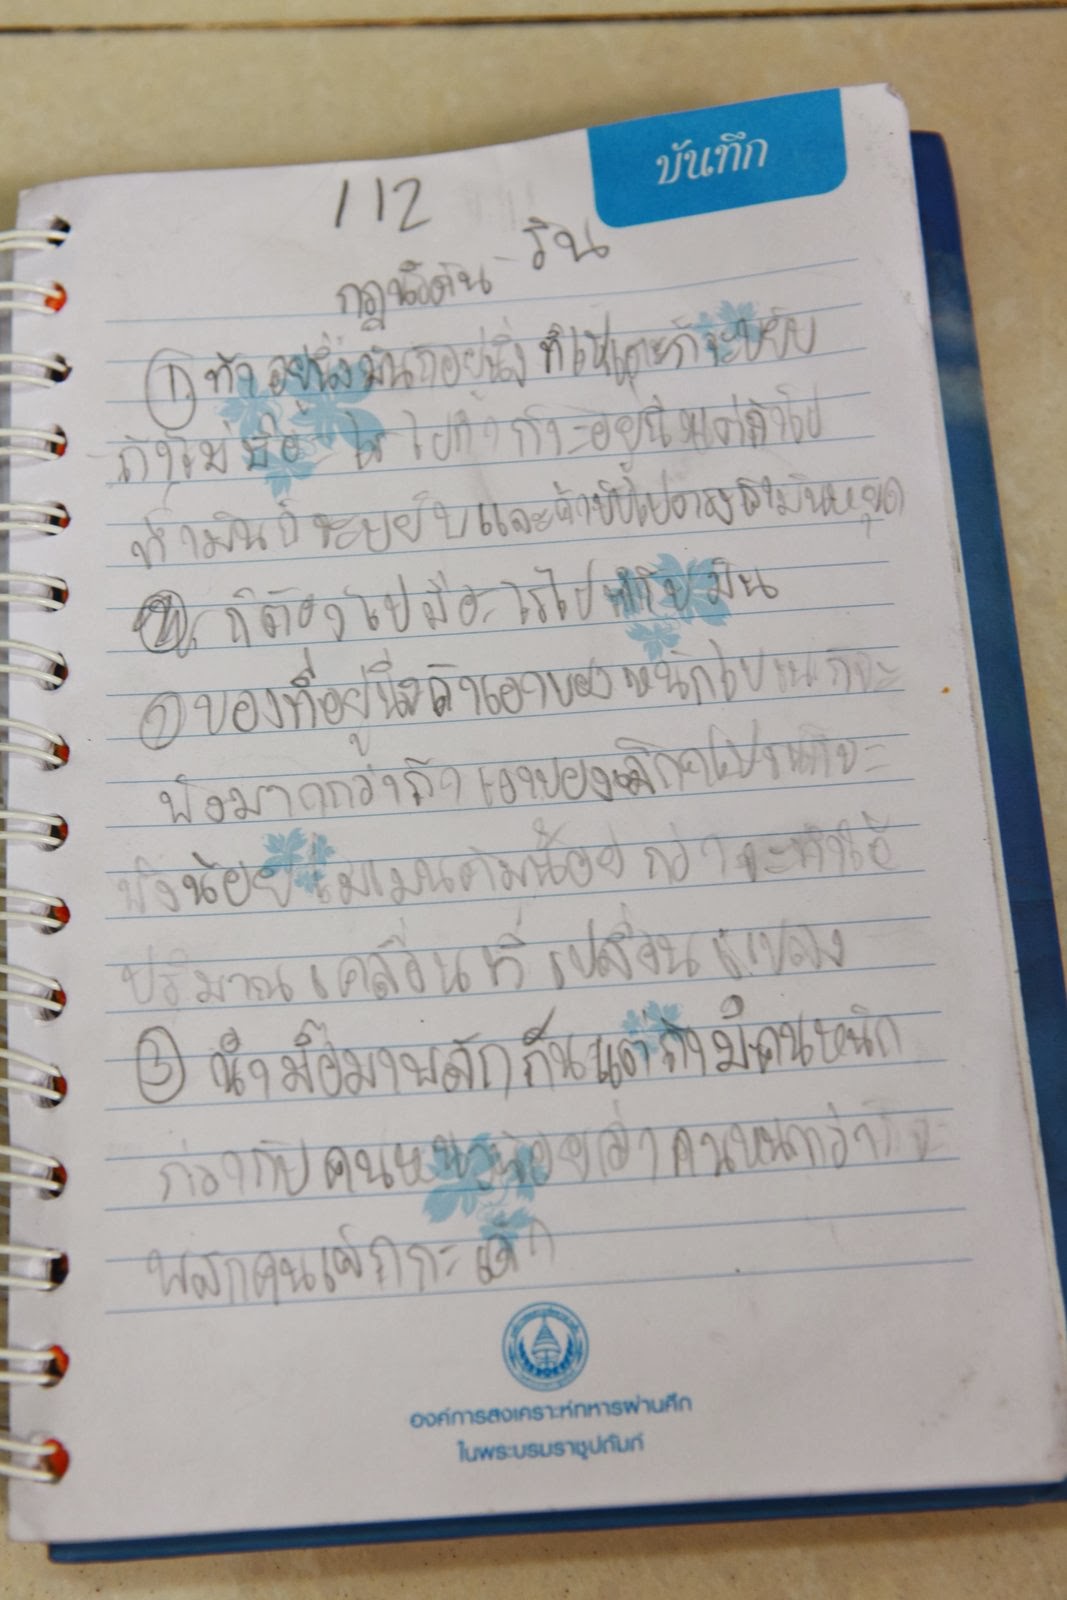 บันทึก
112
ริน
กฎนิวตัน
① ถ้าอยู่นิ่งมันก็อยู่นิ่ง ก็จะขยับ
ถ้าไม่มีอะไรไป ก็จะอยู่นิ่งแต่ถ้าไป
ทำมันก็จะขยับและถ้า มันหยุด
② ก็ต้องไปมีอะไรไป มัน
① ของที่อยู่นิ่งถ้าเอาของหนักไป ก็จะ
พังมากกว่าถ้าเอาของเล็ก ก็จะ
พังน้อย โมเมนตัมน้อยกว่าจะทำให้
ปริมาณเคลื่อนที่เปลี่ยนแปลง
③ นำมือมาผลักกันแต่ถ้ามีคนหนัก
กว่ากับคน คน กว่าก็จะ
ผลักคนเล็กกระเด็น
องค์การสงเคราะห์ทหารผ่านศึก
ในพระบรมราชูปถัมภ์